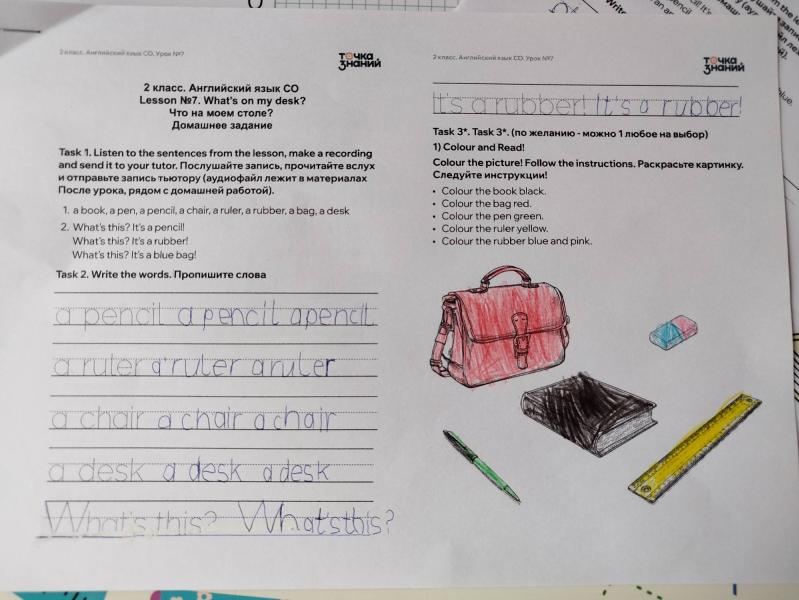 2 класс. Английский язык СО. Урок №7
точка
знаний
2 класс. Английский язык СО
Lesson №7. What's on my desk?
Что на моем столе?
Домашнее задание
Task 1. Listen to the sentences from the lesson, make a recording
and send it to your tutor. Послушайте запись, прочитайте вслух
и отправьте запись тьютору (аудиофайл лежит в материалах
После урока, рядом с домашней работой).
1. a book, a pen, a pencil, a chair, a ruler, a rubber, a bag, a desk
2. What's this? It's a pencil!
What's this? It's a rubber!
What's this? It's a blue bag!
Task 2. Write the words. Пропишите слова
a pencil a pencil a pencil
a ruler a ruler a ruler
a chair a chair a chair
a desk a desk a desk
What's this? What's this?
2 класс. Английский язык СО. Урок №7
точка
знаний
It's a rubber! It's a rubber!
Task 3*. Task 3*. (по желанию - можно 1 любое на выбор)
1) Colour and Read!
Colour the picture! Follow the instructions. Раскрасьте картинку.
Следуйте инструкции!
• Colour the book black.
• Colour the bag red.
• Colour the pen green.
• Colour the ruler yellow.
• Colour the rubber blue and pink.